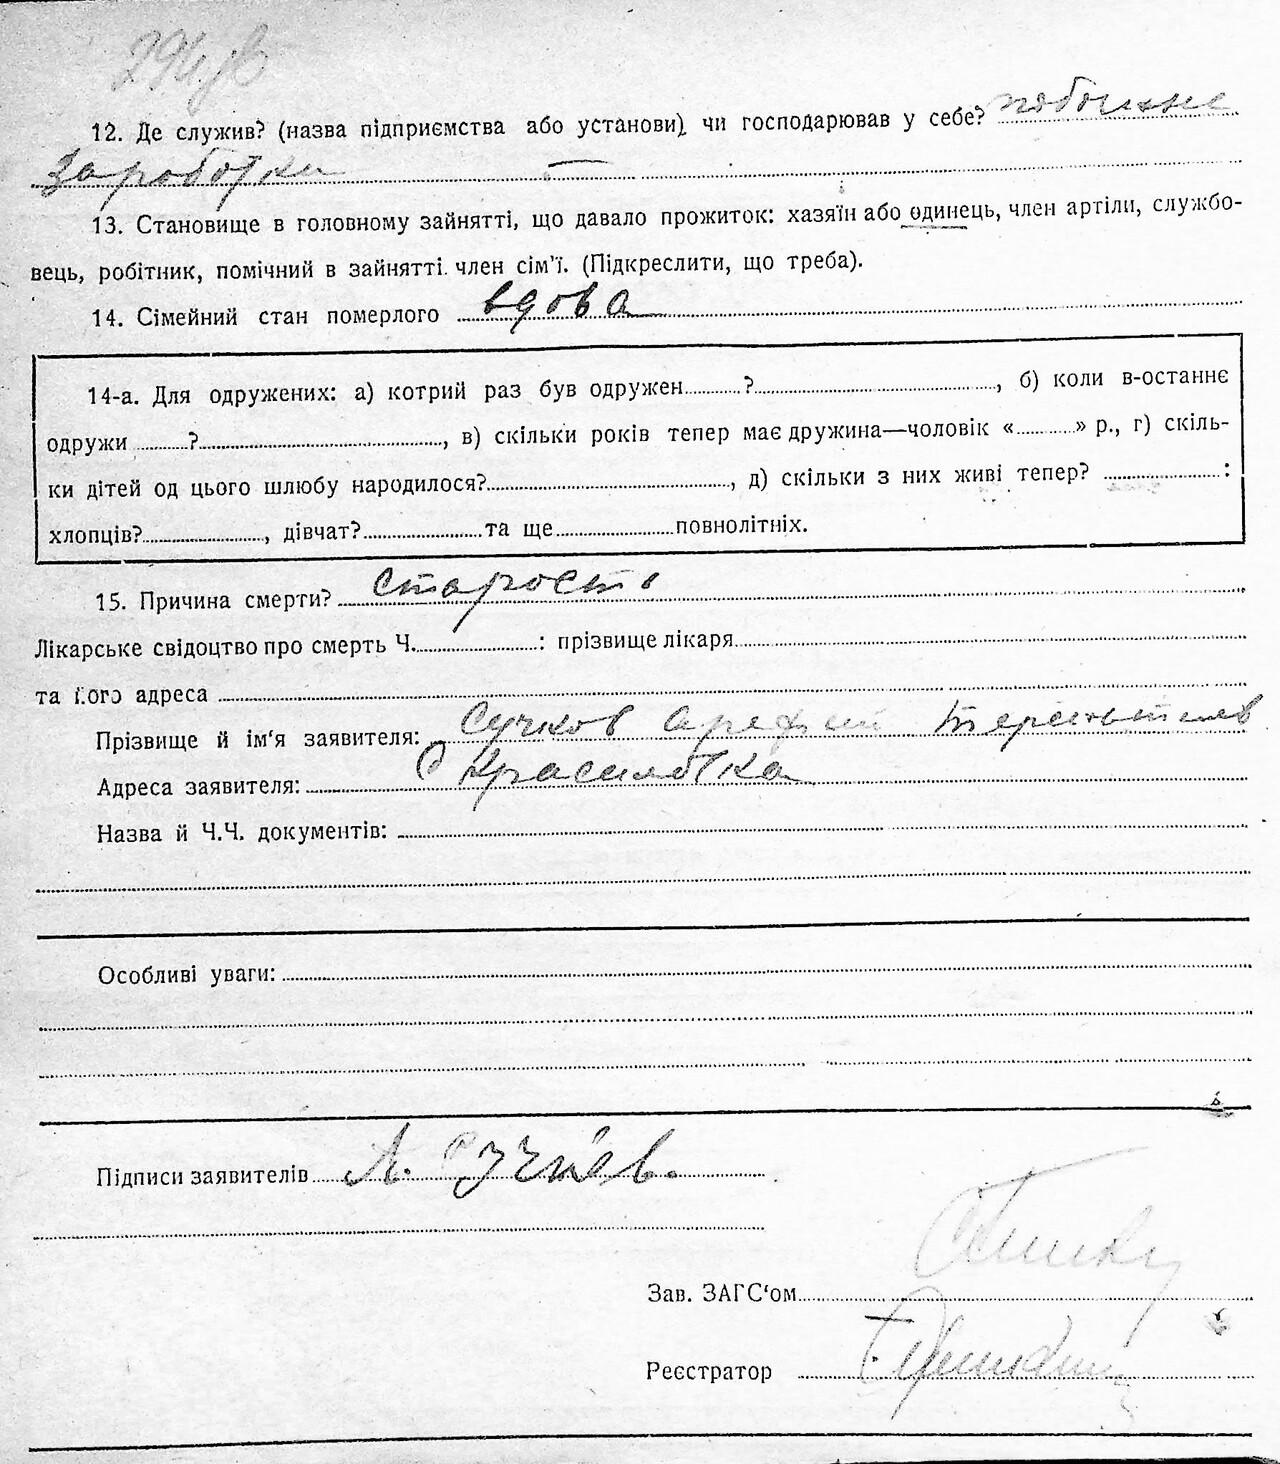 12. Де служив? (назва підприємства або установи), чи господарював у себе? побочные
заработки —
13. Становище в головному зайнятті, що давало прожиток: хазяїн або одинець, член артіли, службо-
вець, робітник, помічний в зайнятті член сім'ї. (Підкреслити, що треба).
14. Сімейний стан померлого вдова
14-а. Для одружених: а) котрий раз був одружен ? , б) коли в-останнє
одружи ? , в) скільки років тепер має дружина—чоловік « » р., г) скіль-
ки дітей од цього шлюбу народилося? , д) скільки з них живі тепер? :
хлопців? , дівчат? та ще повнолітніх.
15. Причина смерти? старость
Лікарське свідоцтво про смерть Ч. : прізвище лікаря
та його адреса
Прізвище й ім'я заявителя: Сучков
Адреса заявителя: с Красиловка
Назва й Ч.Ч. документів:
Особливі уваги:
Підписи заявителів А. Сучков.
Зав. ЗАГС'ом
Реєстратор